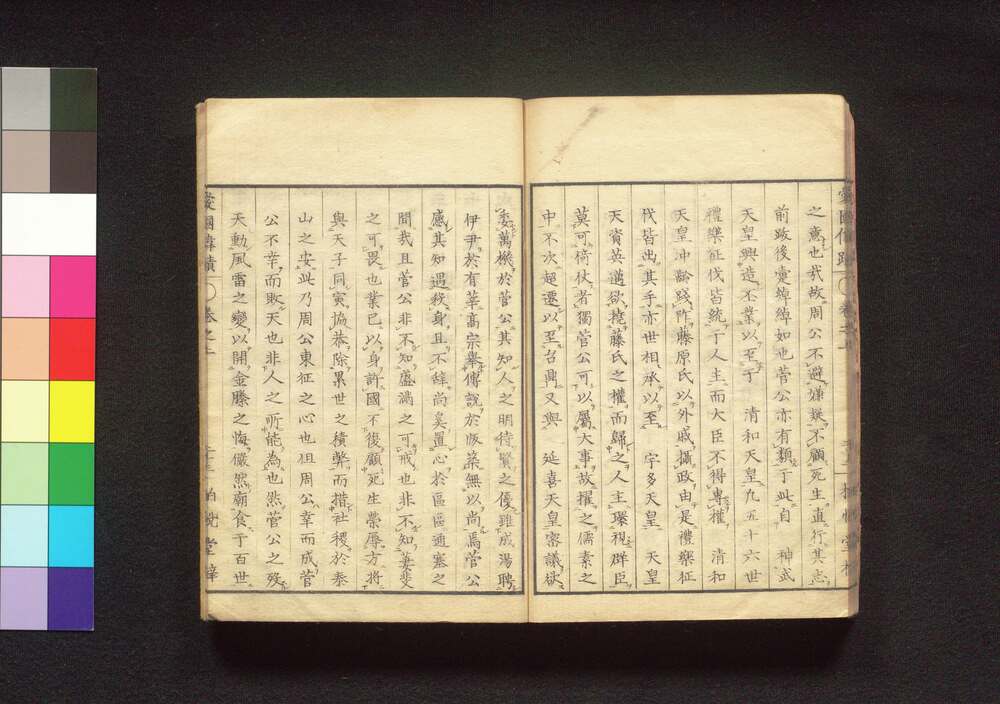 之意也我故周公不避嫌疑不顧死生直行其志
前跋後疐綽綽如也菅公亦有類于此自　神武
天皇興造丕業以至于　清和天皇凡五十六世
禮樂征伐皆統于人主而大臣不得專權　清和
天皇沖齡踐阼藤原氏以外戚攝政由是禮樂征
伐皆出其手亦世相承以至　宇多天皇　天皇
天資英邁欲撓藤氏之權而歸之人主環視群臣
莫可倚仗者獨菅公可以屬大事故擢之儒素之
中不次超遷以至台鼎又與　延喜天皇密議欲
委萬機於菅公其知人之明待賢之優雖成湯聘
伊尹於有莘高宗舉傅說於版築無以尚焉菅公
感其知遇致身且不辭尚奚置心於區區通塞之
間哉且菅公非不知盛滿之可戒也非不知萋斐
之可畏也業已以身許國不復顧死生榮辱方將
與天子同寅協恭除累世之積弊而措社稷於泰
山之安此乃周公東征之心也但周公幸而成菅
公不幸而敗天也非人之所能為也然菅公之歿
天動風雷之變以開金縢之悔儼然廟食于百世
愛國偉績　卷之二